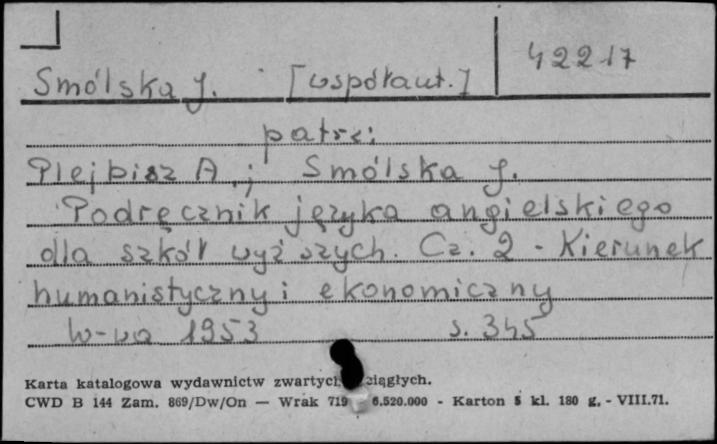 42217
Smólska J. [współaut.]
patrz:
Plejbisz A.; Smólska J.
Podręcznik języka angielskiego
dla szkół wyższych. Cz. 2 - Kierunek
humanistyczny i ekonomiczny
W-wa 1953 s. 345
Karta katalogowa wydawnictw zwartych ciągłych.
CWD B 144 Zam. 869/Dw/On — Wrak 719 6.520.000 - Karton 5 kl. 180 g. - VIII.71.